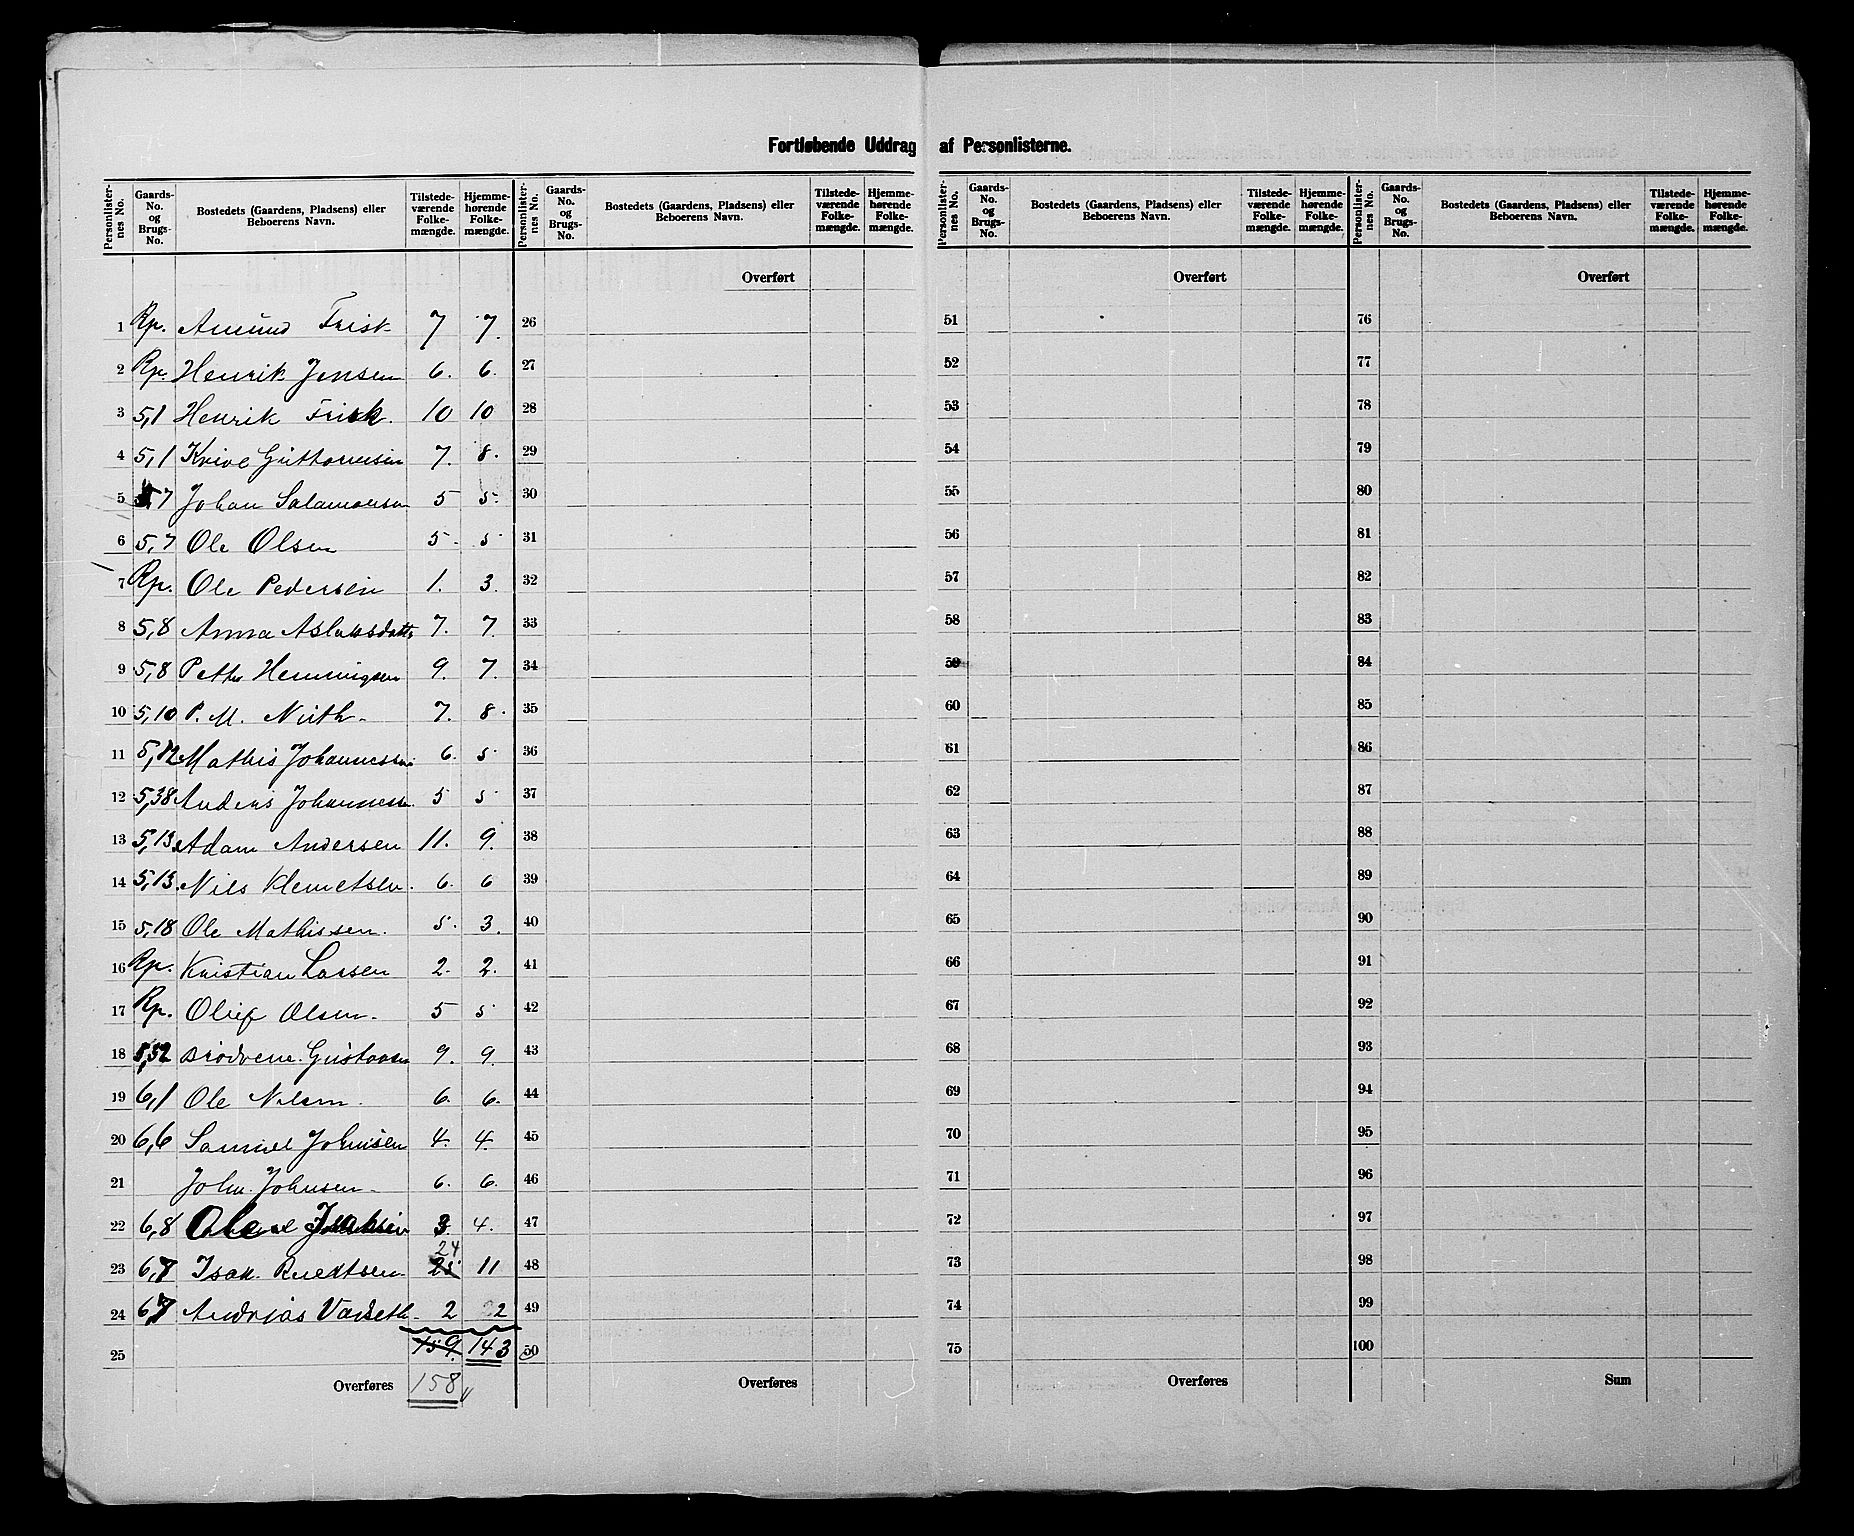 Fortløbende Uddrag af Personlisterne.
Personlister-nes No. | Gaards-No. og Brugs-No. | Bostedets (Gaardens, Pladsens) eller Beboerens Navn. | Tilstede-værende Folke-mængde. | Hjemme-hørende Folke-mængde. | Personlister-nes No. | Gaards-No. og Brugs-No. | Bostedets (Gaardens, Pladsens) eller Beboerens Navn. | Tilstede-værende Folke-mængde. | Hjemme-hørende Folke-mængde. | Personlister-nes No. | Gaards-No. og Brugs-No. | Bostedets (Gaardens, Pladsens) eller Beboerens Navn. | Tilstede-værende Folke-mængde. | Hjemme-hørende Folke-mængde. | Personlister-nes No. | Gaards-No. og Brugs-No. | Bostedets (Gaardens, Pladsens) eller Beboerens Navn. | Tilstede-værende Folke-mængde. | Hjemme-hørende Folke-mængde.
Overført Overført Overført
1 Rp. Amund Frisk 7 7. 26 51 76
2 Rp. Henrik Jensen 6. 6. 27 52 77
3 5,1 Henrik Frisk. 10 10 28 53 78
4 5,1 Guttormsen 7. 8. 29 54 79
5 5,7 Johan Salamonsen 5 5. 30 55 80
6 5,7 Ole Olsen 5. 5 31 56 81
7 Rp. Ole Pedersen 1. 3. 32 57 82
8 5,8 Anna Aslaksdatt. 7. 7. 33 58 83
9 5,8 Petter Henningsen 9. 7. 34 59 84
10 5,10 P. M. 7. 8. 35 60 85
11 5,12 Mathis Johannessen 6. 5 36 61 86
12 5,38 Anders Johannessen. 5 5 37 62 87
13 5,13. Adam Andersen 11. 9. 38 63 88
14 5,13. Nils Klemetsen. 6. 6 39 64 89
15 5,18 Ole Mathissen. 5. 3. 40 65 90
16 Rp. Kristian Larsen 2. 2. 41 66 91
17 Rp. Olsen. 5 5 42 67 92
18 5,52 Brødrene Gustavsen 9. 9. 43 68 93
19 6,1 Ole Nilsen. 6. 6. 44 69 94
20 6,6 Samuel Johnsen 4. 4. 45 70 95
21 John Johnsen 6. 6. 46 71 96
22 6,8 Ole Isaksen 3. 4. 47 72 97
24
23 6,7 Isak. 25 11 48 73 98
24 6,7 Andreas 2 2 49 74 99
25 159. 143 50 75 100
Overføres 158 Overføres Overføres Sum